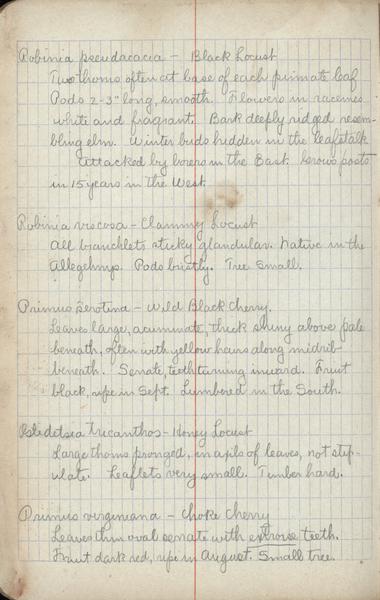 Robinia pseudacacia - Black Locust
Two thorns often at base of each pinnate leaf
Pods 2-3" long, smooth. Flowers in racemes
white and fragrant. Bark deeply ridged resem-
bling elm. Winter buds hidden in the leafstalk
Attacked by borers in the East. Grows posts
in 15 years in the West.
Robinia viscosa - Clammy Locust
All branchlets sticky glandular. Native in the
Alleghenys. Pods bristly. Tree small.
Prunus serotina - Wild Black Cherry.
Leaves large, acuminate, thick shiny above pale
beneath, often with yellow hairs along midrib
beneath. Serrate, teeth turning inward. Fruit
black, ripe in Sept. Lumbered in the South.
Gleditsia tricanthos - Honey Locust
Large thorns pronged, in axils of leaves, not stip-
ulate. Leaflets very small. Timber hard.
Prunus virginiana - Choke Cherry
Leaves thin oval serrate with extrorse teeth.
Fruit dark red, ripe in August. Small tree.